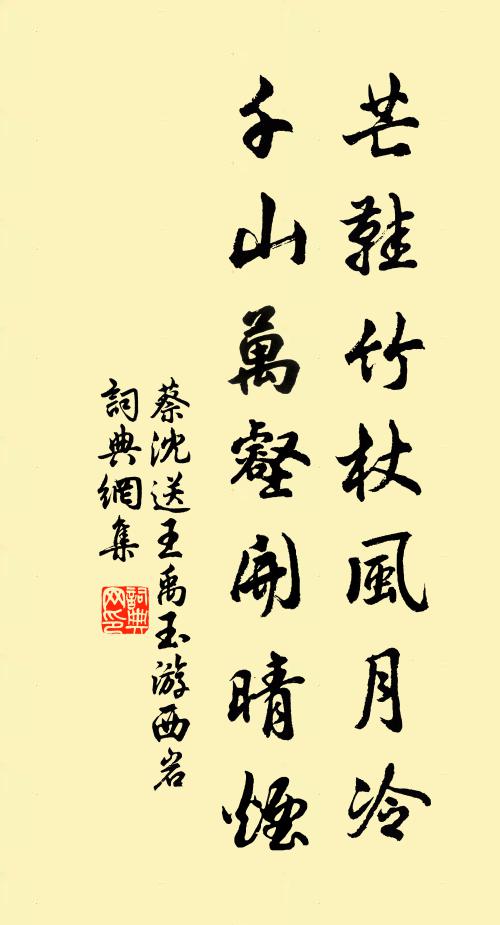 芒鞋竹杖風月冷
千山萬壑開晴煙
蔡沈送王禹玉游西岩
詞典網集
詞典网印